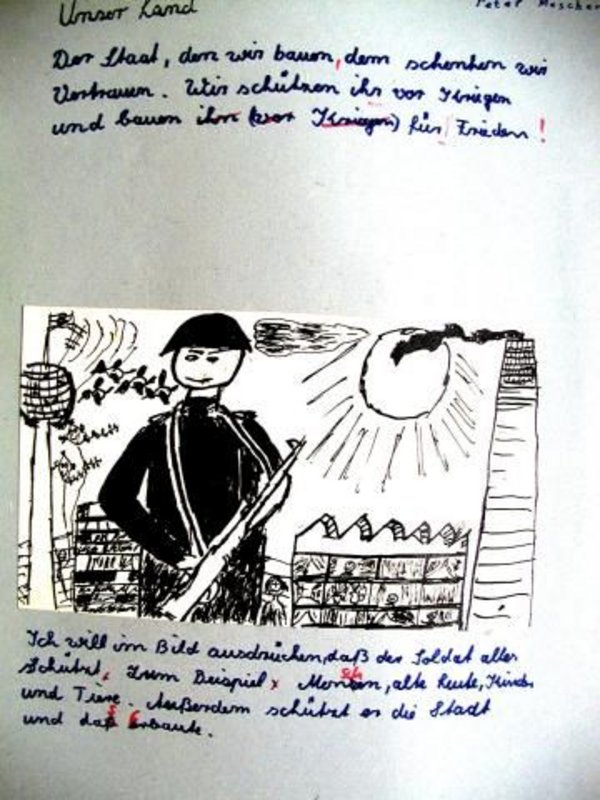 Unser Land
Peter
Der Staat, den wir bauen, dem schenken wir
Vertrauen. Wir schützen ihn vor Kriegen
und bauen ihn (vor Kriegen) für Frieden!
Ich will im Bild ausdrücken, daß der Soldat alles
Schützt, Zum Beispiel Menschen, alte Leute, Kinder
und Tiere. Außerdem schützt er die Stadt
und daß Erbaute.